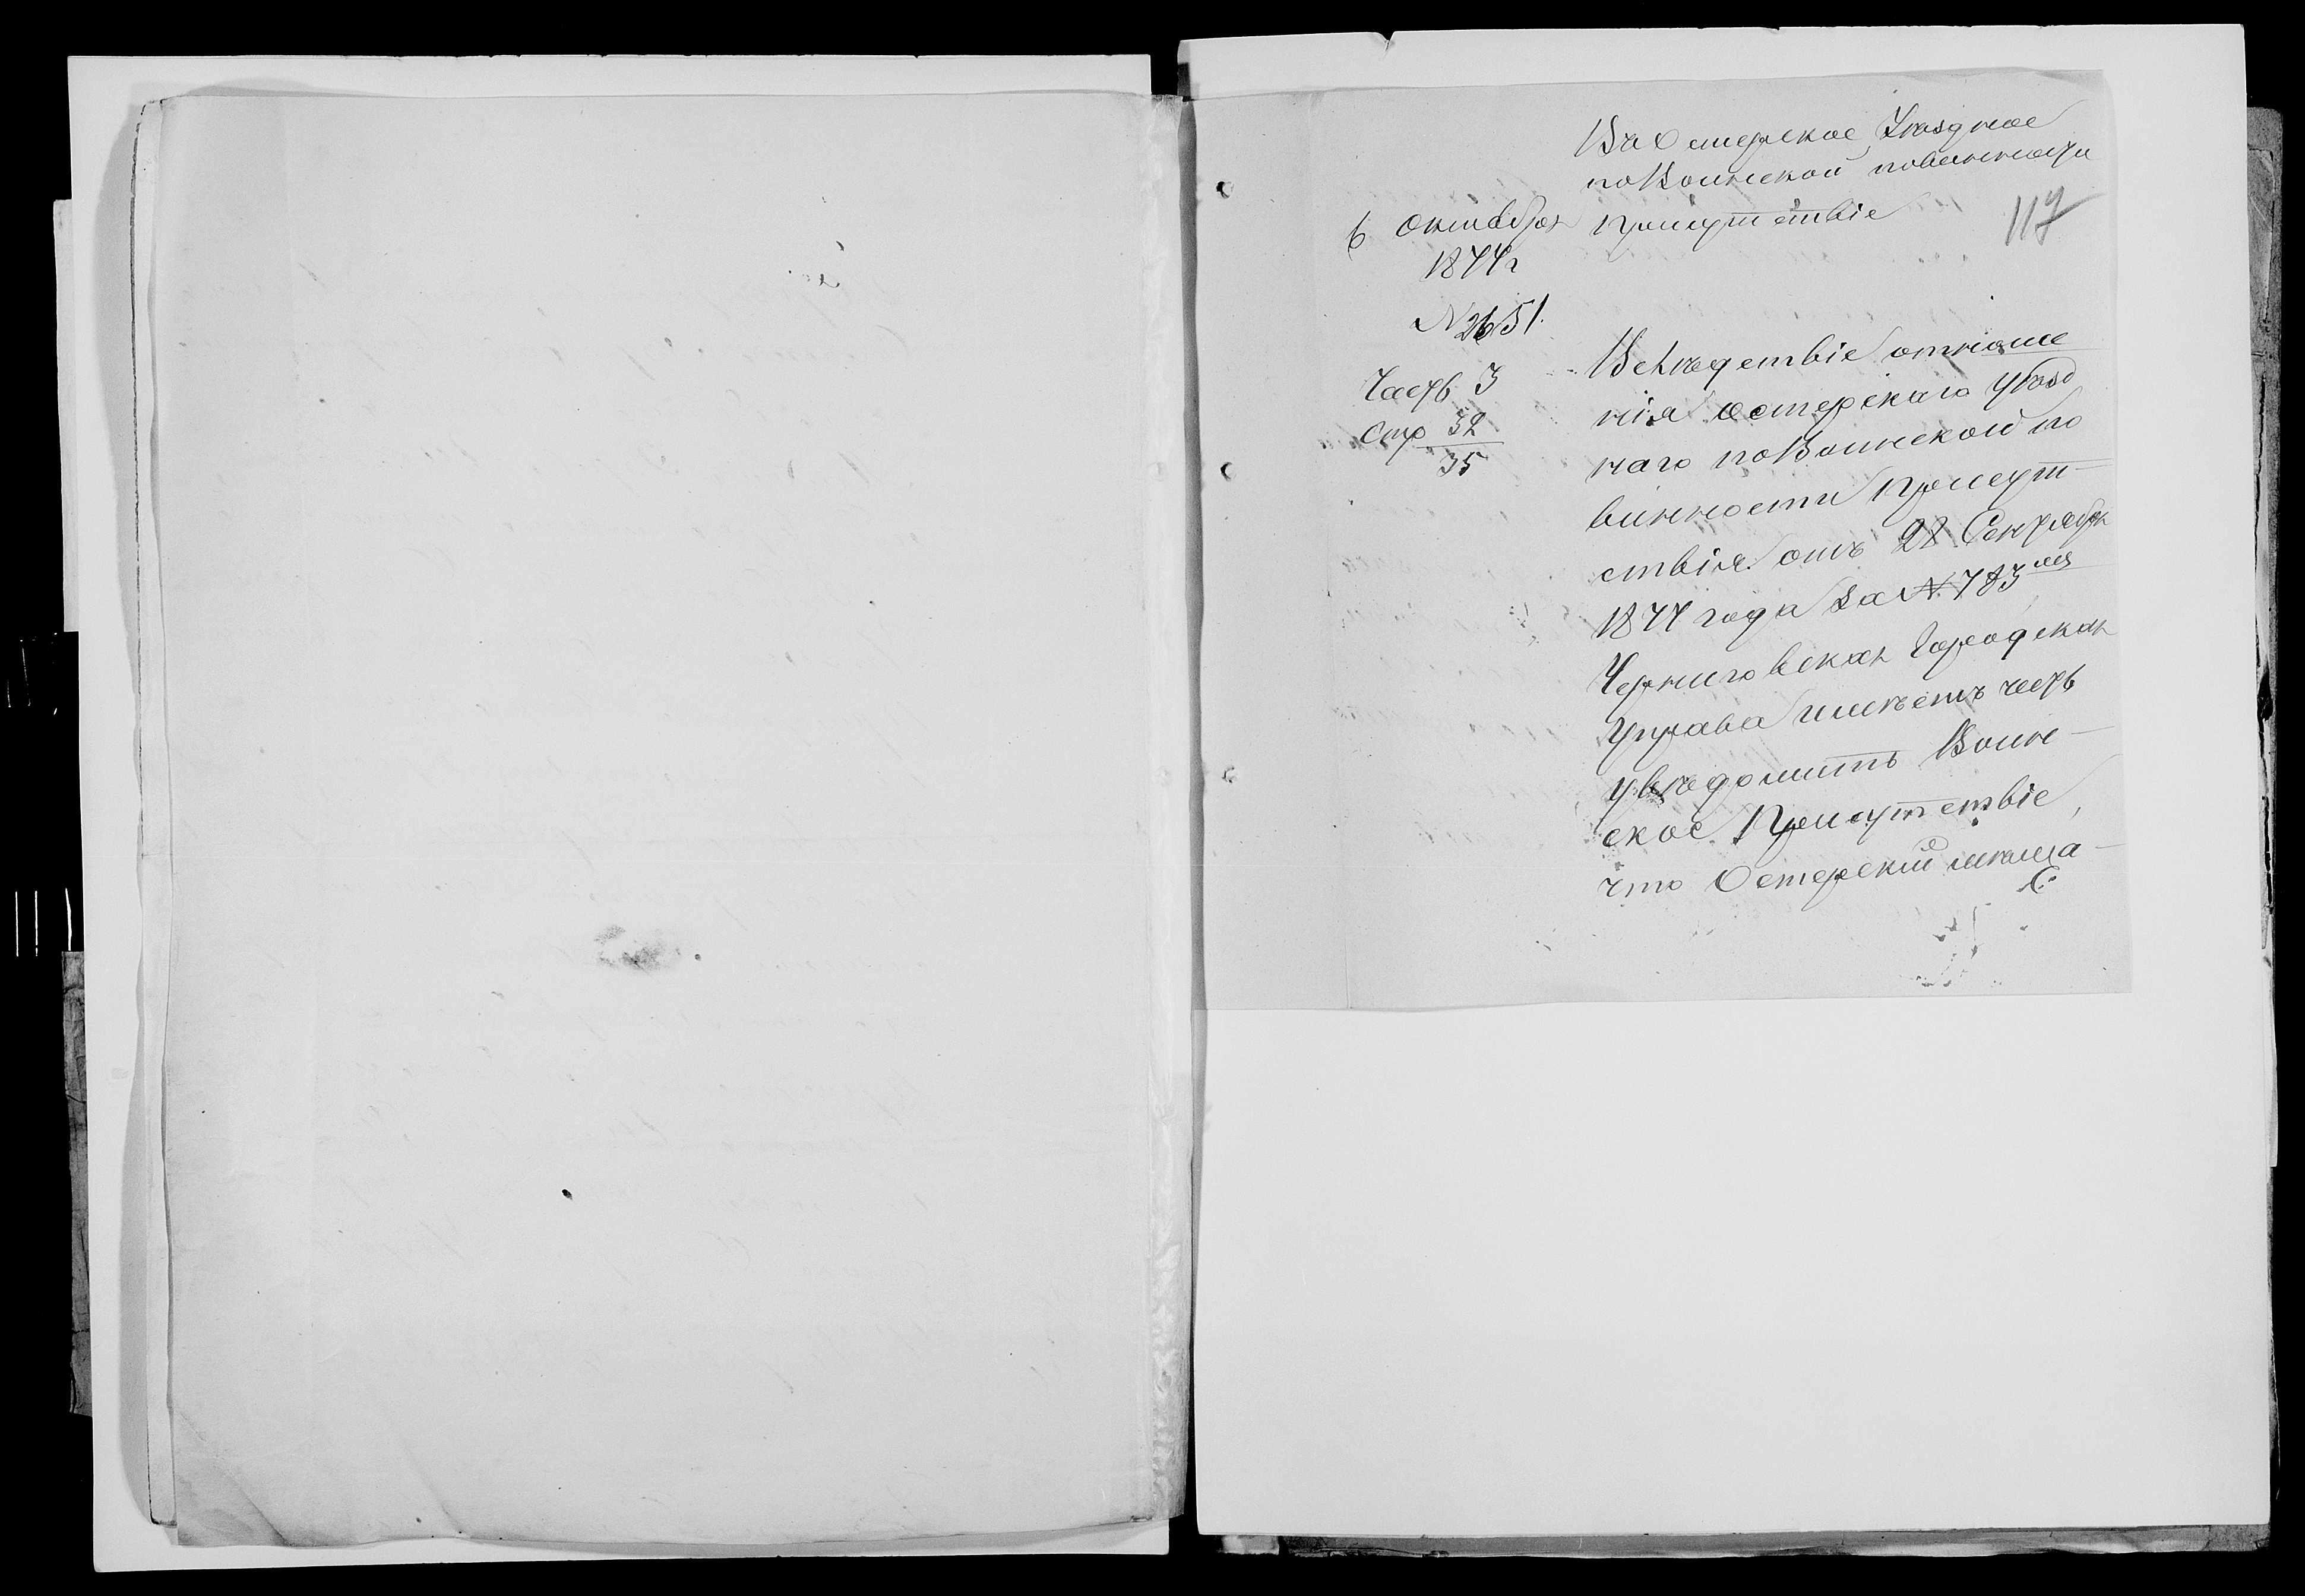 Въ Остерское Уѣздное
по Воинской повинности
Присутствіе
117
6 октября
1877 г
№ 2651.
Часть 3
Стр 32
35
Вслѣдствіе отноше
нія Остерскаго Уѣзд
наго по Воинской по
винности Присут-
ствія отъ 28 Сентября
1877 года за № 783
Черниговская Городская
Управа имѣетъ честь
увѣдомить Воин-
ское Присутствіе,
что Остерскій мѣща-